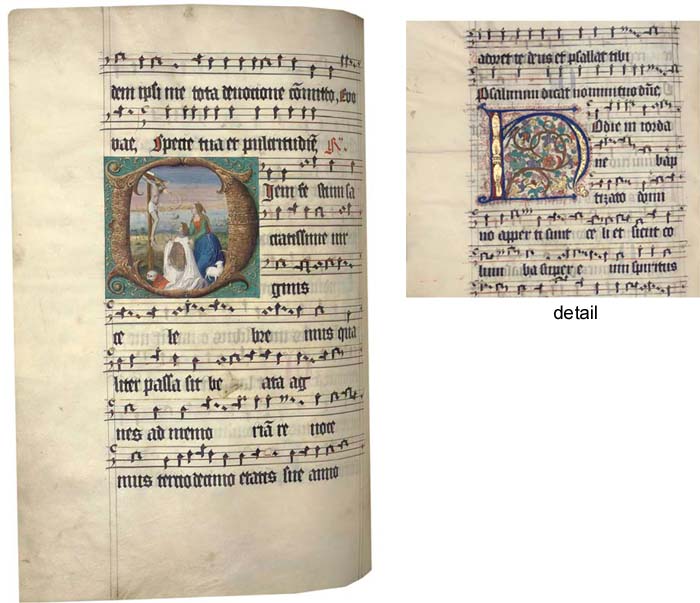 dem ipsi me tota devocione cōmitto, Evo
vae, Specie tua et pulcritudiē, R.
Diem fe stum sa
cratissime vir
ginis
ce le bre mus qua
liter passa sit be ata ag
nes ad memo riā re voce
mus tercio decimo etatis sue anno
adoret te deus et psallat tibi
Psalmum dicat nomini tuo dñe,
Hodie in iorda
ne bap
tizato domi
no apper ti sunt ce li et sicut co
lum ba super e um spiritus
detail